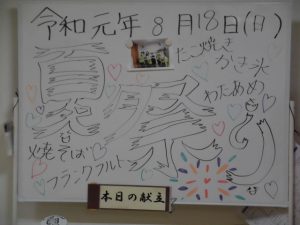 令和元年8月18日(日)
たこ焼き
かき氷
わたあめ
夏祭り
焼そば
フランクフルト
本日の献立